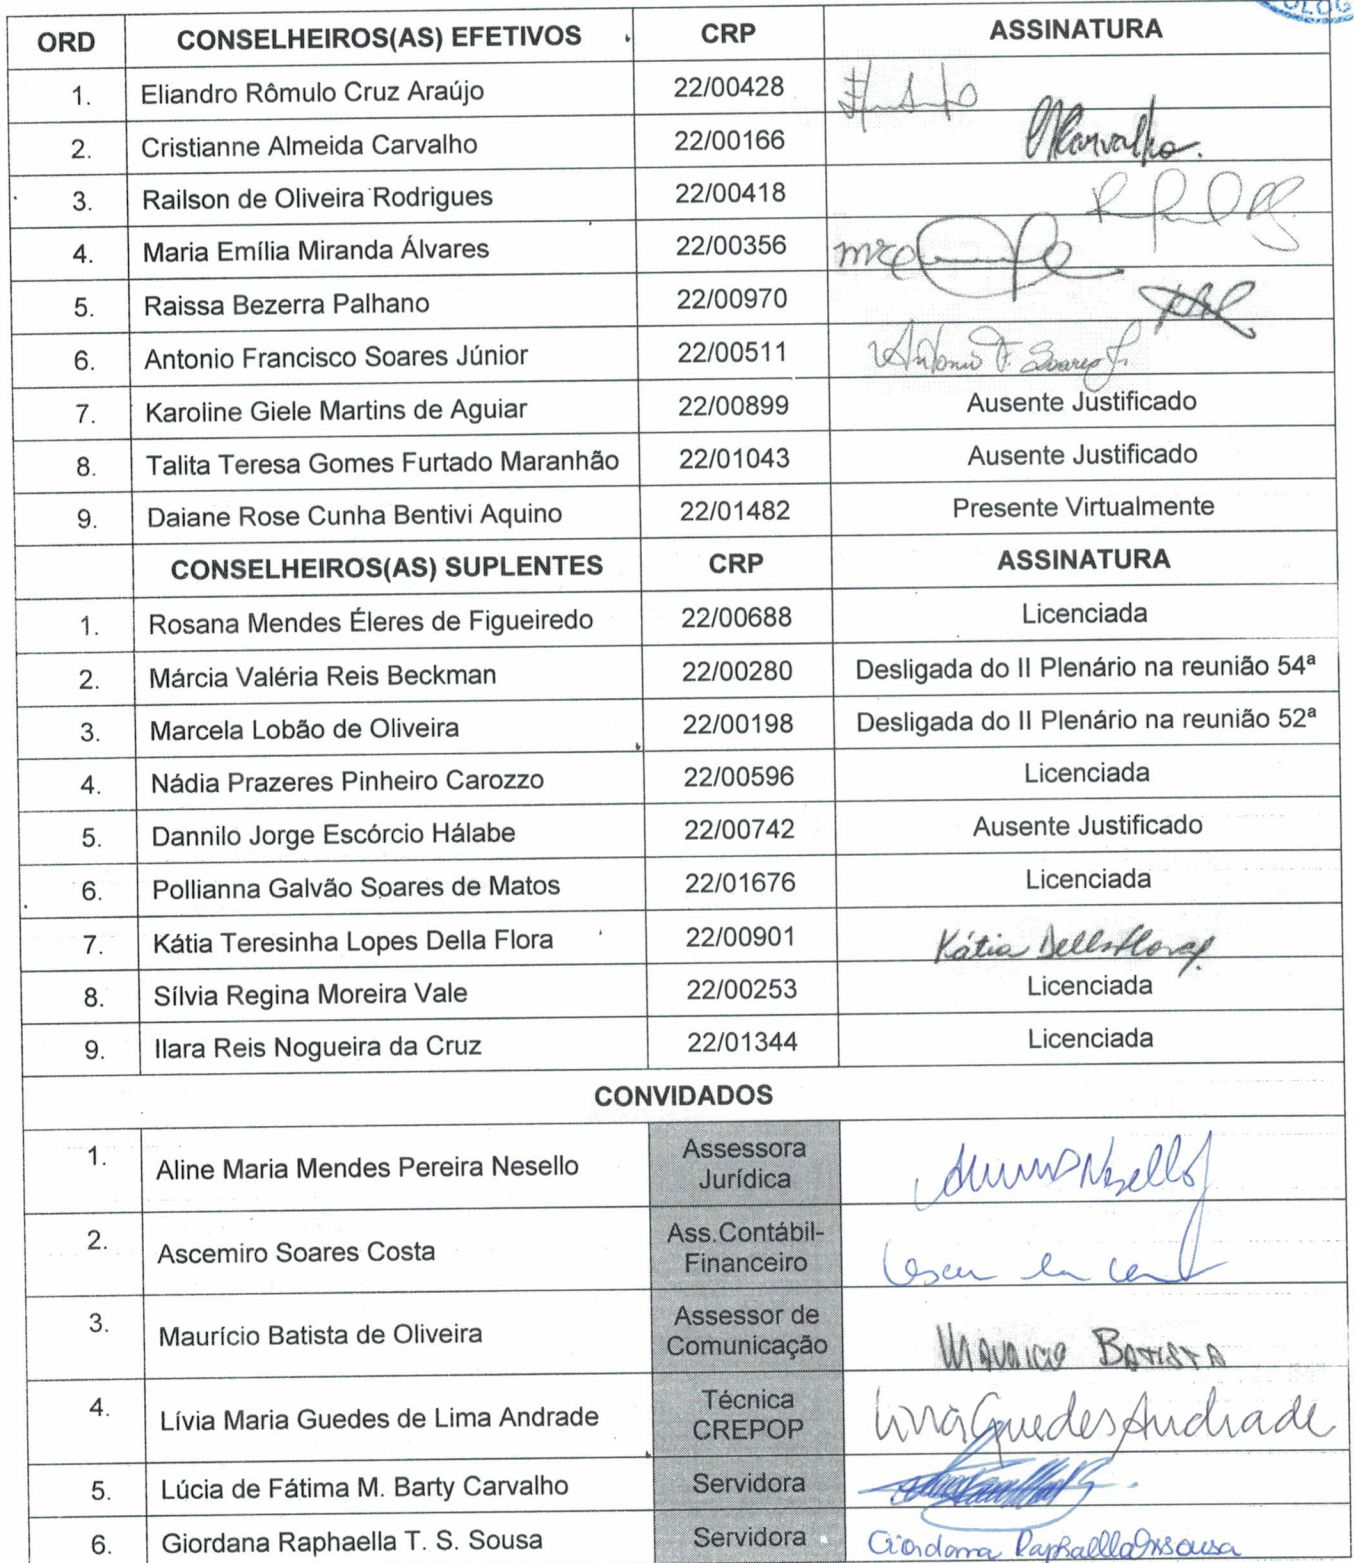 ORD CONSELHEIROS(AS) EFETIVOS CRP ASSINATURA
1. Eliandro Rômulo Cruz Araújo 22/00428
2. Cristianne Almeida Carvalho 22/00166 Carvalho.
3. Railson de Oliveira Rodrigues 22/00418
4. Maria Emília Miranda Álvares 22/00356
5. Raissa Bezerra Palhano 22/00970
6. Antonio Francisco Soares Júnior 22/00511 Antonio F. Soares Jr.
7. Karoline Giele Martins de Aguiar 22/00899 Ausente Justificado
8. Talita Teresa Gomes Furtado Maranhão 22/01043 Ausente Justificado
9. Daiane Rose Cunha Bentivi Aquino 22/01482 Presente Virtualmente
CONSELHEIROS(AS) SUPLENTES CRP ASSINATURA
1. Rosana Mendes Éleres de Figueiredo 22/00688 Licenciada
2. Márcia Valéria Reis Beckman 22/00280 Desligada do II Plenário na reunião 54ª
3. Marcela Lobão de Oliveira 22/00198 Desligada do II Plenário na reunião 52ª
4. Nádia Prazeres Pinheiro Carozzo 22/00596 Licenciada
5. Dannilo Jorge Escórcio Hálabe 22/00742 Ausente Justificado
6. Pollianna Galvão Soares de Matos 22/01676 Licenciada
7. Kátia Teresinha Lopes Della Flora 22/00901 Kátia Della Flora
8. Sílvia Regina Moreira Vale 22/00253 Licenciada
9. Ilara Reis Nogueira da Cruz 22/01344 Licenciada
CONVIDADOS
1. Aline Maria Mendes Pereira Nesello Assessora
Jurídica Nesello
2. Ascemiro Soares Costa Ass.Contábil-
Financeiro
3. Maurício Batista de Oliveira Assessor de
Comunicação MAURICIO BATISTA
4. Lívia Maria Guedes de Lima Andrade Técnica
CREPOP Lívia Guedes Andrade
5. Lúcia de Fátima M. Barty Carvalho Servidora
6. Giordana Raphaella T. S. Sousa Servidora Giordana Raphaella